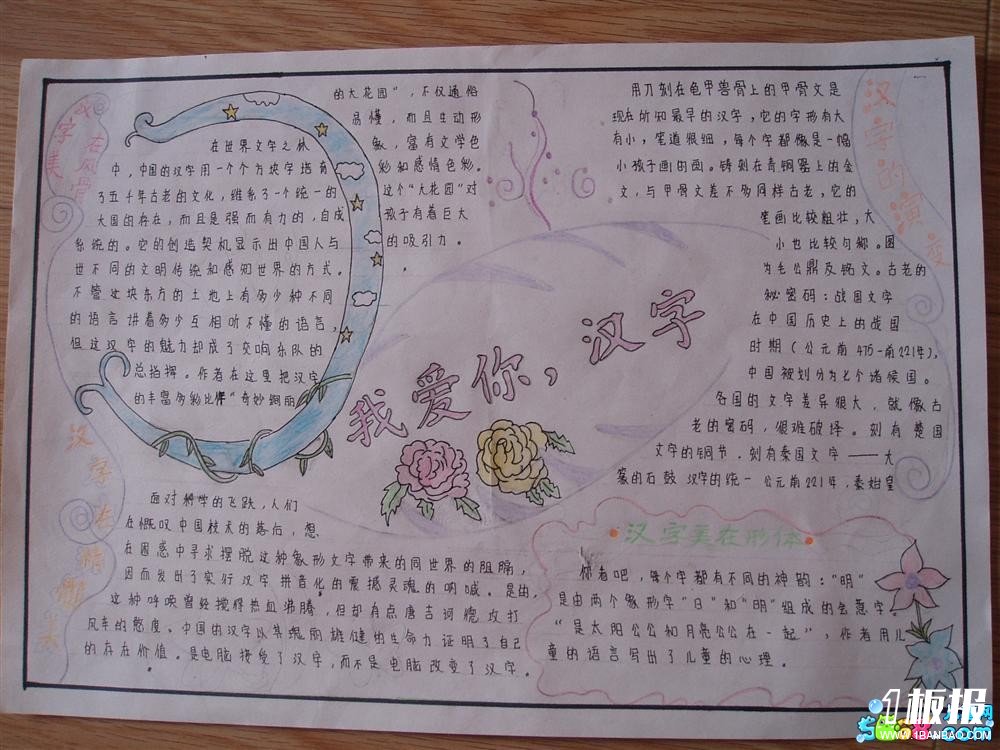 汉字美在风骨
在世界文字之林
中，中国的汉字用一个个方块字培育
了五千年古老的文化，维系了一个统一的
大国的存在，而且是强而有力的，自成
系统的。它的创造契机显示出中国人与
世不同的文明传统和感知世界的方式。
不管这块东方的土地上有多少种不同
的语言讲着多少互相听不懂的语言，
但这汉字的魅力却成了交响乐队的
总指挥。作者在这里把汉字
的丰富多彩比作“奇妙绚丽
的大花园”，不仅通俗
易懂，而且生动形
象，富有文学色
彩和感情色彩。
这个“大花园”对
孩子有着巨大
的吸引力。
我爱你，汉字
汉字的演变
用刀刻在龟甲兽骨上的甲骨文是
现在所知最早的汉字，它的字形有大
有小，笔道很细，每个字都像是一幅
小孩子画的画。铸刻在青铜器上的金
文，与甲骨文差不多同样古老，它的
笔画比较粗壮，大
小也比较匀称。图
为毛公鼎及铭文。古老的
秘密码：战国文字
在中国历史上的战国
时期（公元前475-前221年），
中国被划分为七个诸候国。
各国的文字差异很大，就像古
老的密码，很难破译。刻有楚国
文字的铜节．刻有秦国文字——大
篆的石鼓 汉字的统一 公元前221年，秦始皇
汉字在精雕美
面对科学的飞跃，人们
在慨叹中国技术的落后，想
在困惑中寻求摆脱这种象形文字带来的同世界的阻隔，
因而发出了实行汉字拼音化的震撼灵魂的呐喊。是的，
这种呼唤曾经搅得热血沸腾，但却有点唐吉诃德攻打
风车的憨度。中国的汉字以其瑰丽雄健的生命力证明了自己
的存在价值。是电脑接受了汉字，而不是电脑改变了汉字．
·汉字美在形体·
你看吧，每个字都有不同的神韵：“明”
是由两个象形字“日”和“明”组成的会意字，
“是太阳公公和月亮公公在一起”，作者用儿
童的语言写出了儿童的心理。
1板报
WWW.1BANBAO.COM